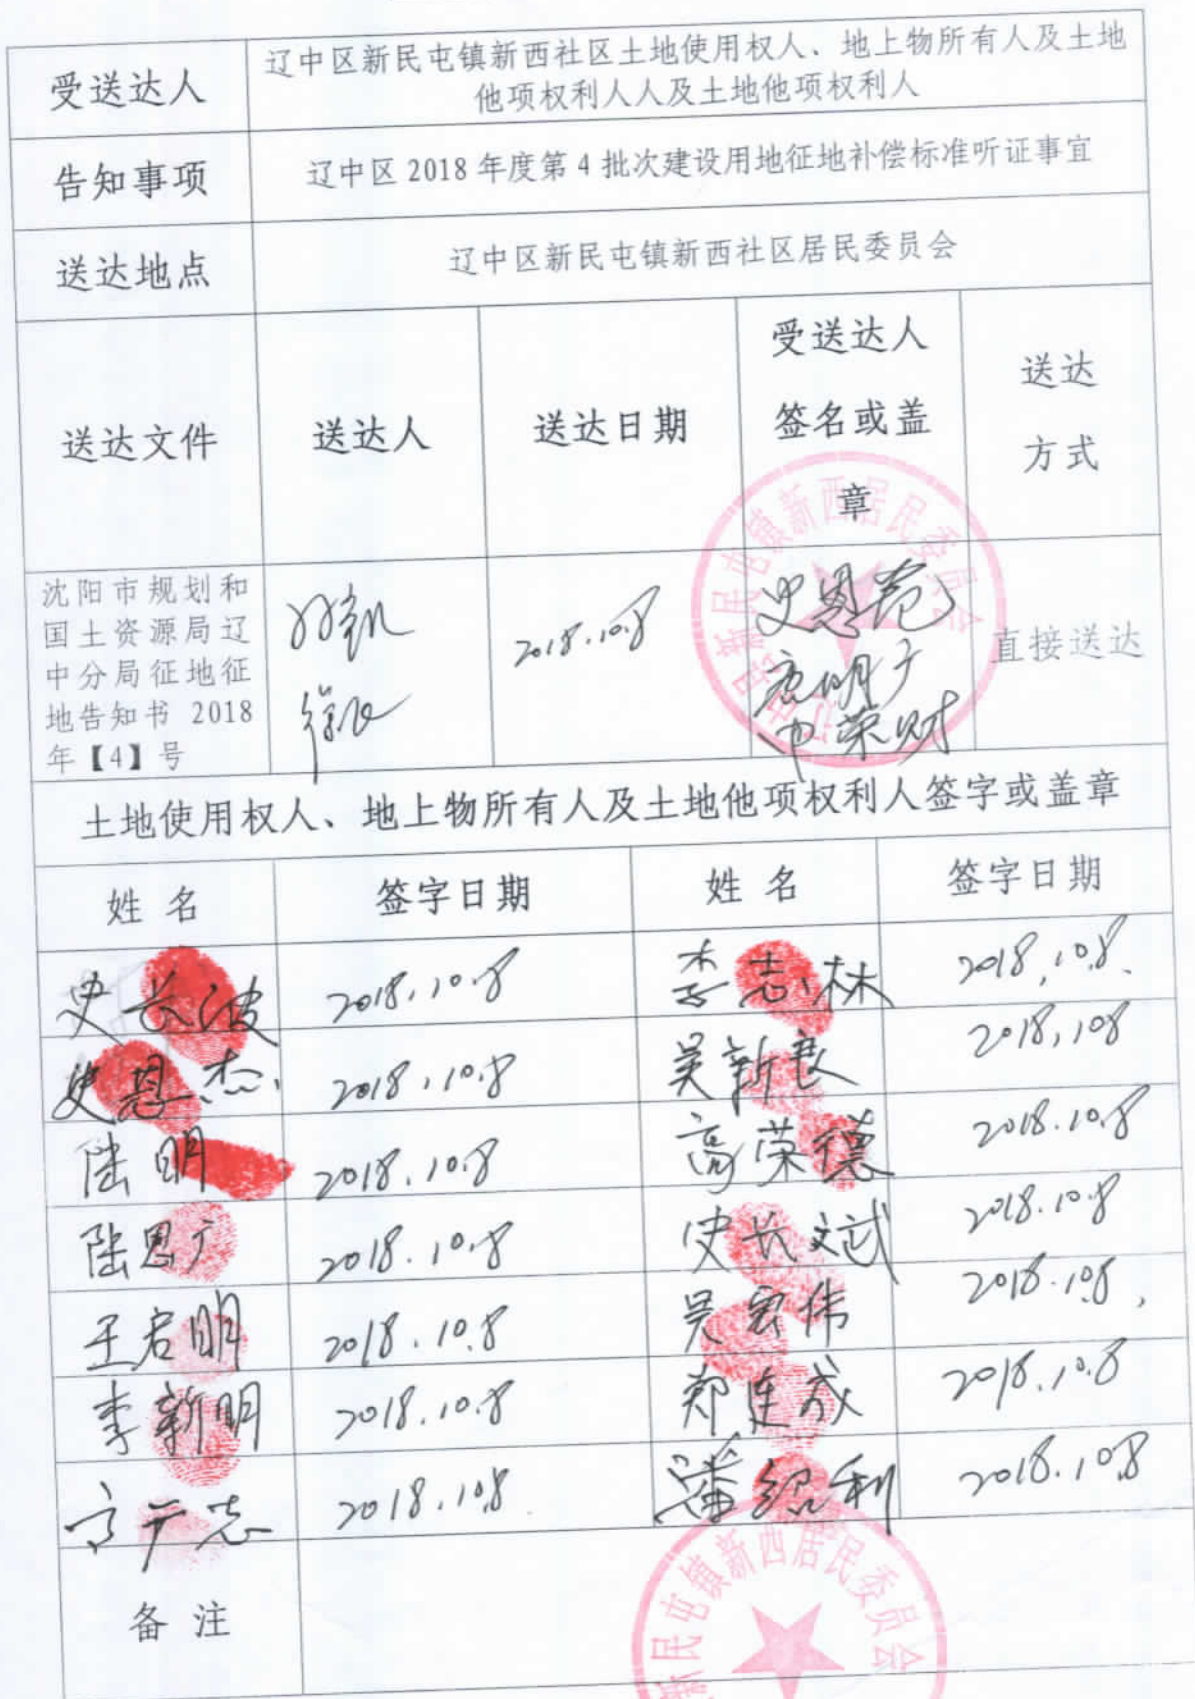 受送达人
辽中区新民屯镇新西社区土地使用权人、地上物所有人及土地
他项权利人人及土地他项权利人
告知事项
辽中区 2018 年度第 4 批次建设用地征地补偿标准听证事宜
送达地点
辽中区新民屯镇新西社区居民委员会
送达文件
送达人
送达日期
受送达人
签名或盖
章
送达
方式
沈阳市规划和
国土资源局辽
中分局征地征
地告知书 2018
年【4】号
2018.10.8
史恩范
直接送达
新民屯镇新西居民委员会
土地使用权人、地上物所有人及土地他项权利人签字或盖章
姓 名
签字日期
姓 名
签字日期
史长波
2018.10.8
李志林
2018.10.8.
史恩杰
2018.10.8
吴新良
2018.108
陆明
2018.10.8
高荣德
2018.10.8
陆恩广
2018.10.8
史长斌
2018.10.8
王启明
2018.10.8
吴宏伟
2018.10.8,
李新明
2018.10.8
郑连成
2018.10.8
2018.10.8
潘绍利
2018.10.8
备 注
新民屯镇新西居民委员会